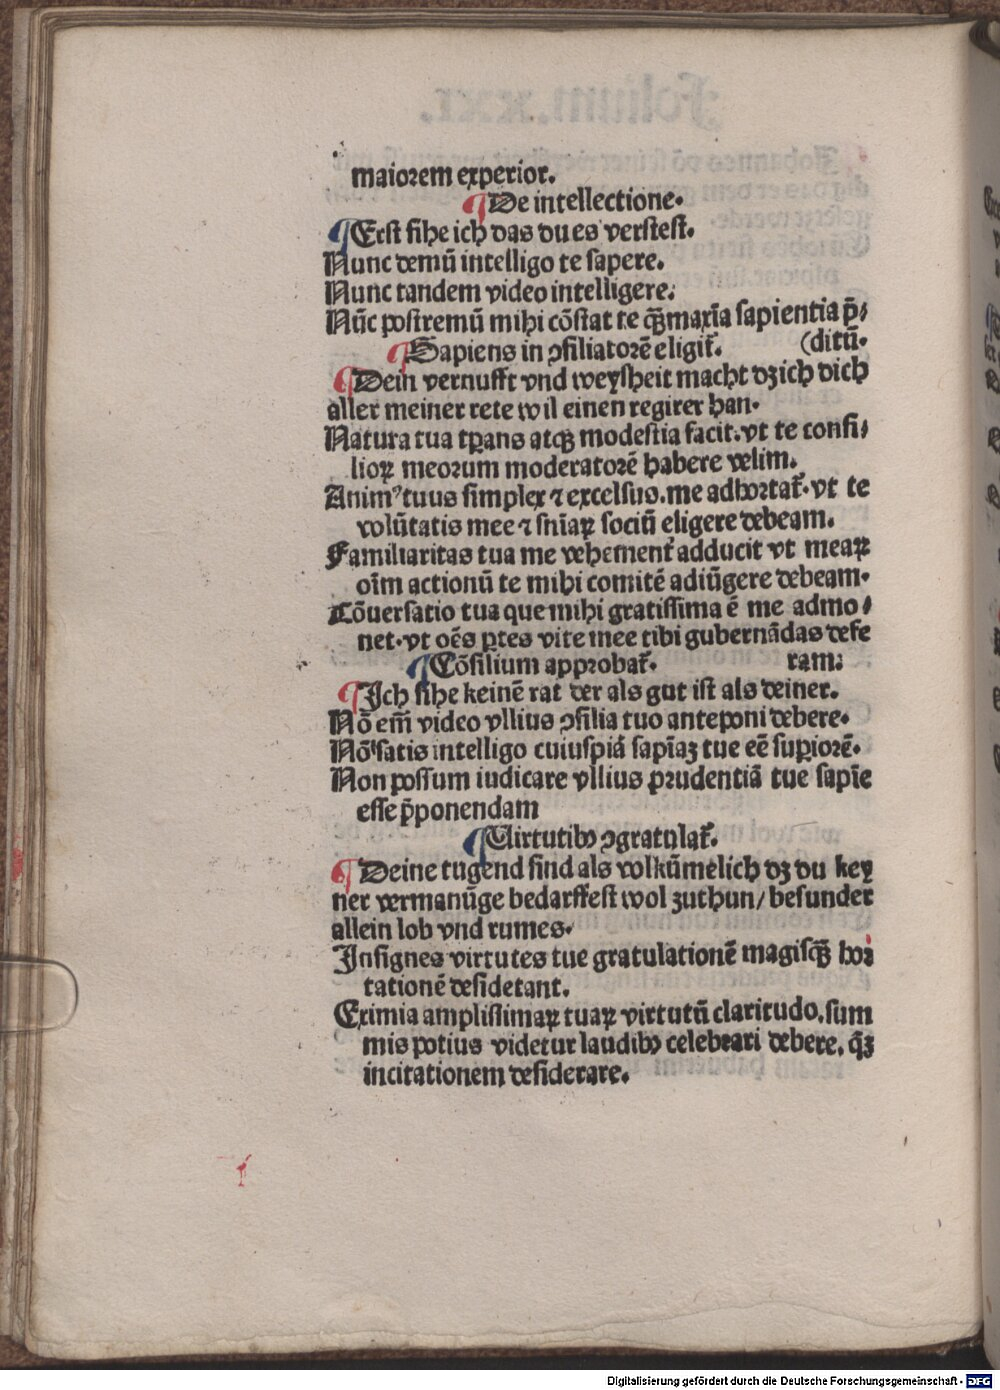 maiorem experior.
¶De intellectione.
¶Erst sihe ich das du es verstest.
Nunc demū intelligo te sapere.
Nunc tandem video intelligere.
Nūc postremū mihi cōstat te qȝmaxīa sapientia p̄/
¶Sapiens in ꝯsiliatorē eligit᷑. (ditū.
¶Dein vernufft vnd weysheit macht dz ich dich
aller meiner rete wil einen regirer han.
Natura tua tꝑans atqȝ modestia facit. vt te consi/
lioꝝ meorum moderatorē habere velim.
Animꝰ tuus simplex ⁊ excelsus. me adhortat᷑. vt te
volūtatis mee ⁊ snīaꝝ sociū eligere debeam.
Familiaritas tua me vehement᷑ adducit vt meaꝝ
oīm actionū te mihi comitē adiūgere debeam.
Cōuersatio tua que mihi gratissima ē me admo/
net. vt oēs ꝑtes vite mee tibi gubernādas defe
¶Cōsilium approbat᷑. ram.
¶Ich sihe keinē rat der als gut ist als deiner.
Nō em̄ video vllius ꝯsilia tuo anteponi debere.
Nō satis intelligo cuiuspiā sapīaȝ tue eē suꝑiorē.
Non possum iudicare vllius prudentiā tue sapīe
esse p̄ponendam
¶Uirtutibꝰ ꝯgratulat᷑.
¶Deine tugend sind als volkūmelich dz du key
ner vermanūge bedarffest wol zuthun/ besunder
allein lob vnd rumes.
Insignes virtutes tue gratulationē magisqȝ hor
tationē desidetant.
Eximia amplissimaꝝ tuaꝝ virtutū claritudo. sum
mis potius videtur laudibꝰ celebrari debere. q̄ȝ
incitationem desiderare.
Digitalisierung gefördert durch die Deutsche Forschungsgemeinschaft - DFG